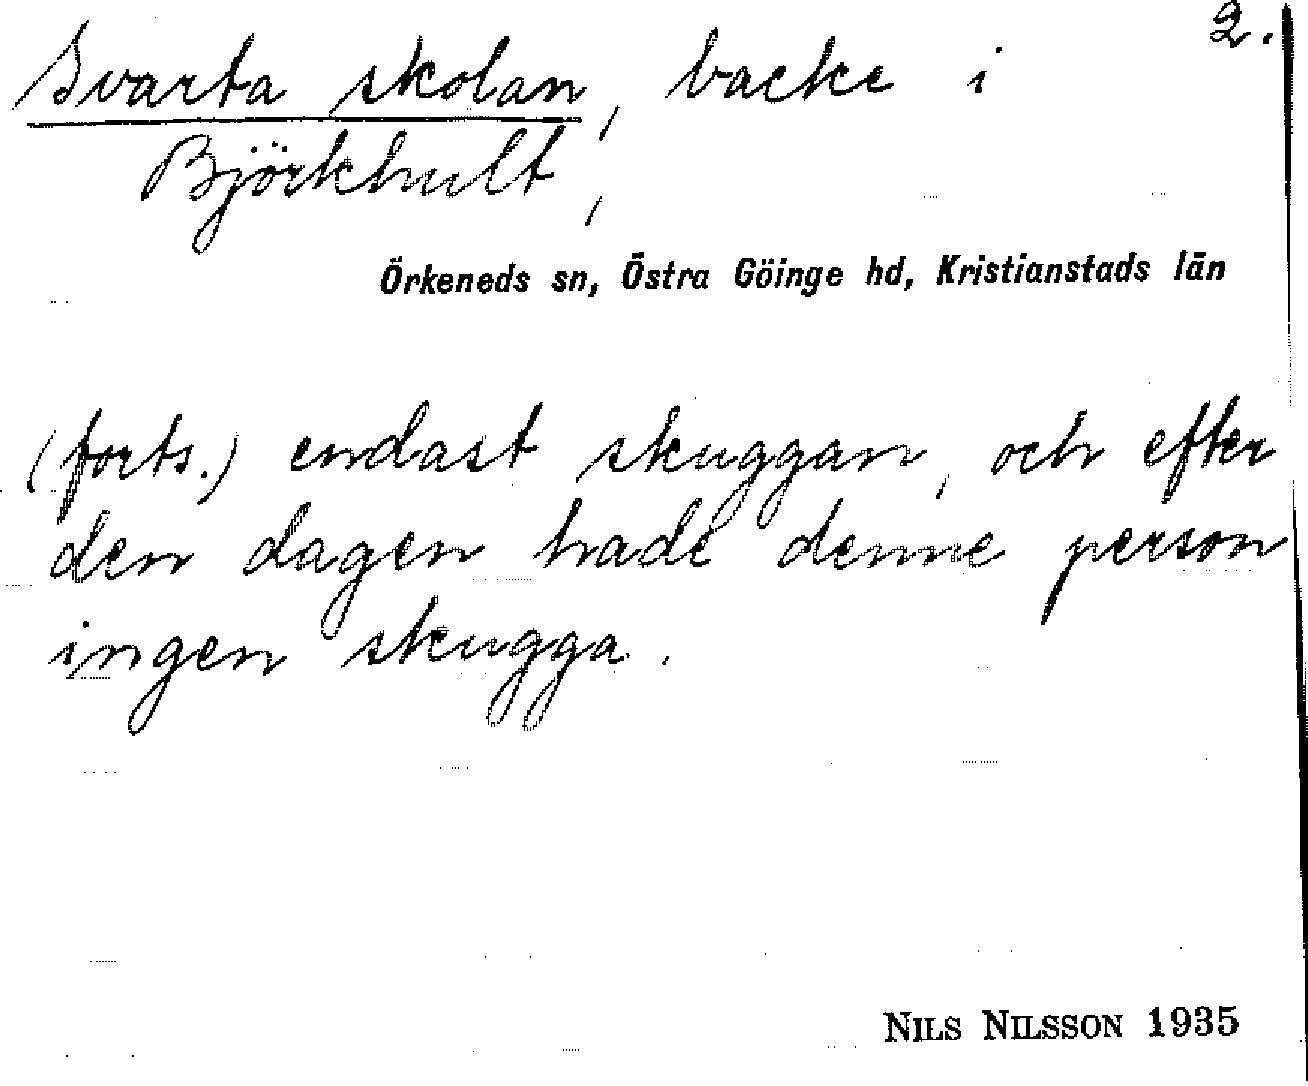 2.
Svarta skolan, backe i
Björkhult,
Örkeneds sn, Östra Göinge hd, Kristianstads län
(forts.) endast skuggan, och efter
den dagen hade denne person
ingen skugga.
NILS NILSSON 1935